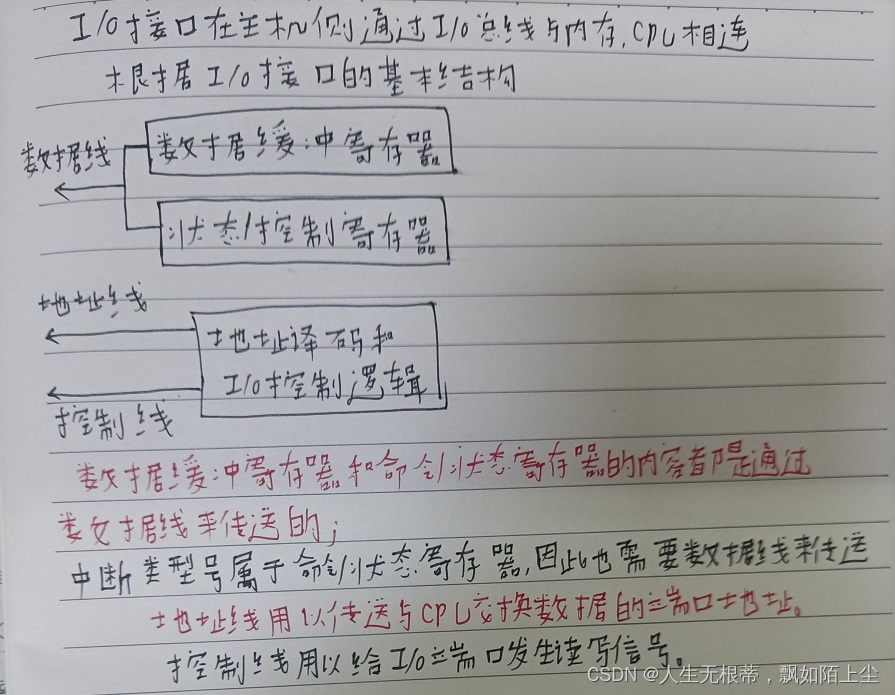 I/O接口在主机侧通过I/O总线与内存,CPU相连
根据I/O接口的基本结构
数据线
数据缓冲寄存器
状态/控制寄存器
地址线
地址译码和
I/O控制逻辑
控制线
数据缓冲寄存器和命令/状态寄存器的内容都是通过
数据线来传送的;
中断类型号属于命令/状态寄存器,因此也需要数据线来传送
地址线用以传送与CPU交换数据的端口地址。
控制线用以给I/O端口发生读写信号。
CSDN @人生无根蒂，飘如陌上尘